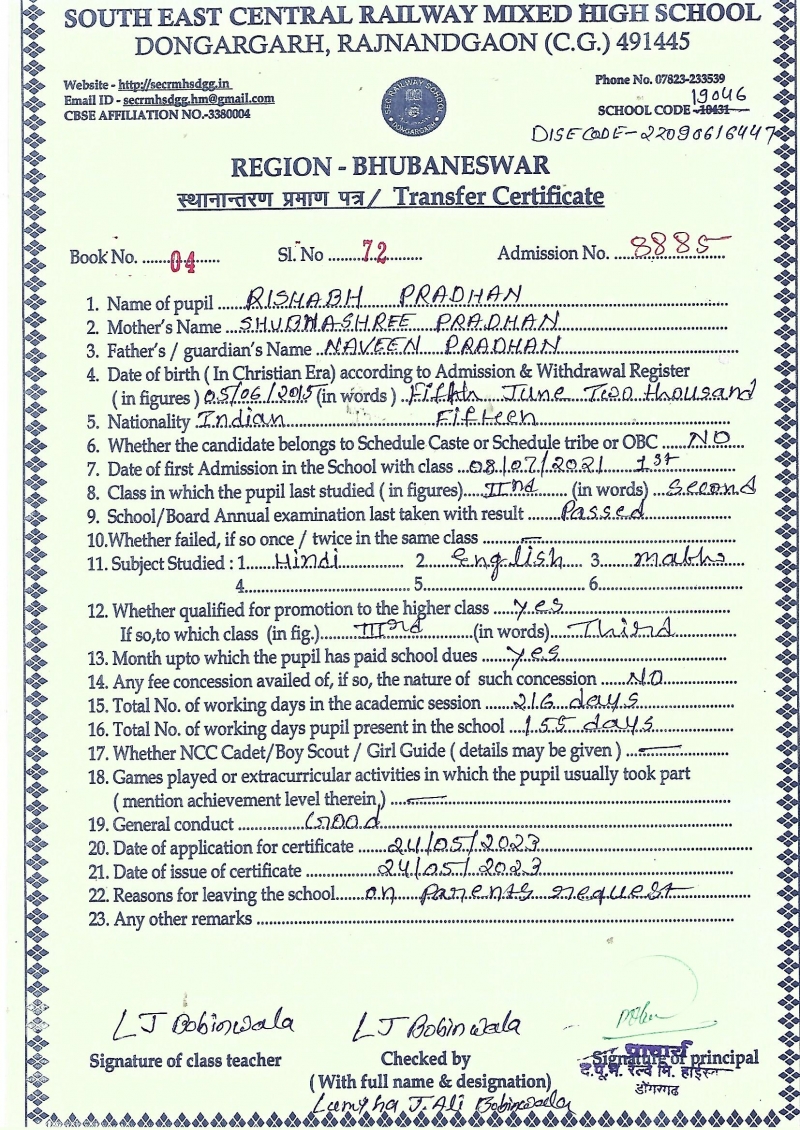 SOUTH EAST CENTRAL RAILWAY MIXED HIGH SCHOOL
DONGARGARH, RAJNANDGAON (C.G.) 491445
Website - http://secrmhsdgg.in
Email ID - secrmhsdgg.hm@gmail.com
CBSE AFFILIATION NO.-3380004
Phone No. 07823-233539
19046
SCHOOL CODE -10431-
DISE CODE-22090616447
SEC RAILWAY SCHOOL
DONGARGARH
REGION - BHUBANESWAR
स्थानान्तरण प्रमाण पत्र/ Transfer Certificate
Book No. 04 Sl. No 72 Admission No. 8885
1. Name of pupil RISHABH PRADHAN
2. Mother's Name SHUBHASHREE PRADHAN
3. Father's / guardian's Name NAVEEN PRADHAN
4. Date of birth ( In Christian Era) according to Admission & Withdrawal Register
( in figures ) 05/06/2015 (in words ) Fifth June Two thousand
5. Nationality Indian Fifteen
6. Whether the candidate belongs to Schedule Caste or Schedule tribe or OBC NO
7. Date of first Admission in the School with class 08/07/2021 1st
8. Class in which the pupil last studied ( in figures) IInd (in words) Second
9. School/Board Annual examination last taken with result Passed
10.Whether failed, if so once / twice in the same class —
11. Subject Studied : 1. Hindi 2. English 3. maths
4. 5. 6.
12. Whether qualified for promotion to the higher class yes
If so,to which class (in fig.) IIIrd (in words) Third
13. Month upto which the pupil has paid school dues yes
14. Any fee concession availed of, if so, the nature of such concession NO
15. Total No. of working days in the academic session 216 days
16. Total No. of working days pupil present in the school 155 days
17. Whether NCC Cadet/Boy Scout / Girl Guide ( details may be given ) —
18. Games played or extracurricular activities in which the pupil usually took part
( mention achievement level therein ) —
19. General conduct Good
20. Date of application for certificate 24/05/2023
21. Date of issue of certificate 24/05/2023
22. Reasons for leaving the school on Parents request
23. Any other remarks
L J Bobinwala L J Bobinwala
Signature of class teacher Checked by Signature of principal
(With full name & designation)
J. Ali Bobinwala
प्राचार्य
द.पू.म. रेल्वे मि. हाईस्कूल
डोंगरगढ़